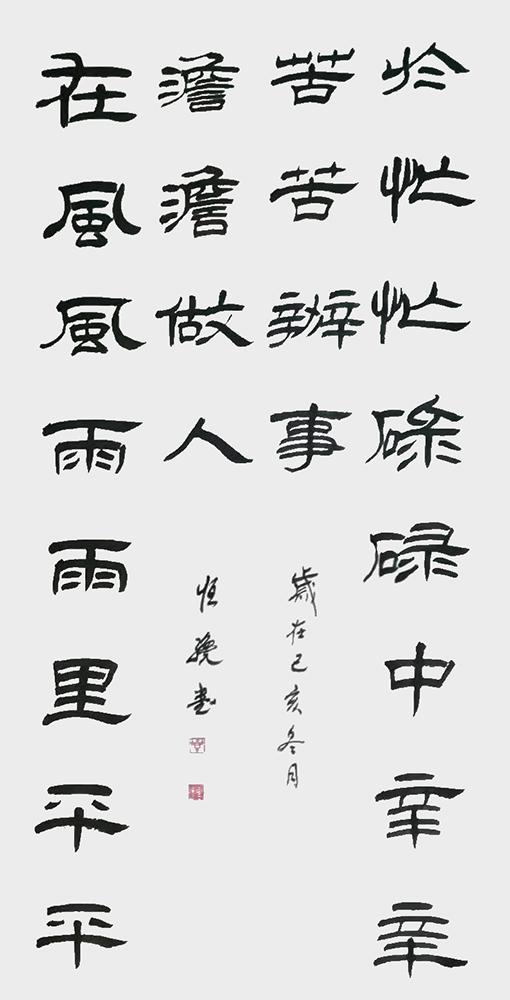 於忙忙碌碌中辛辛
苦苦辦事
在風風雨雨里平平
澹澹做人
歲在己亥冬月
恒 書